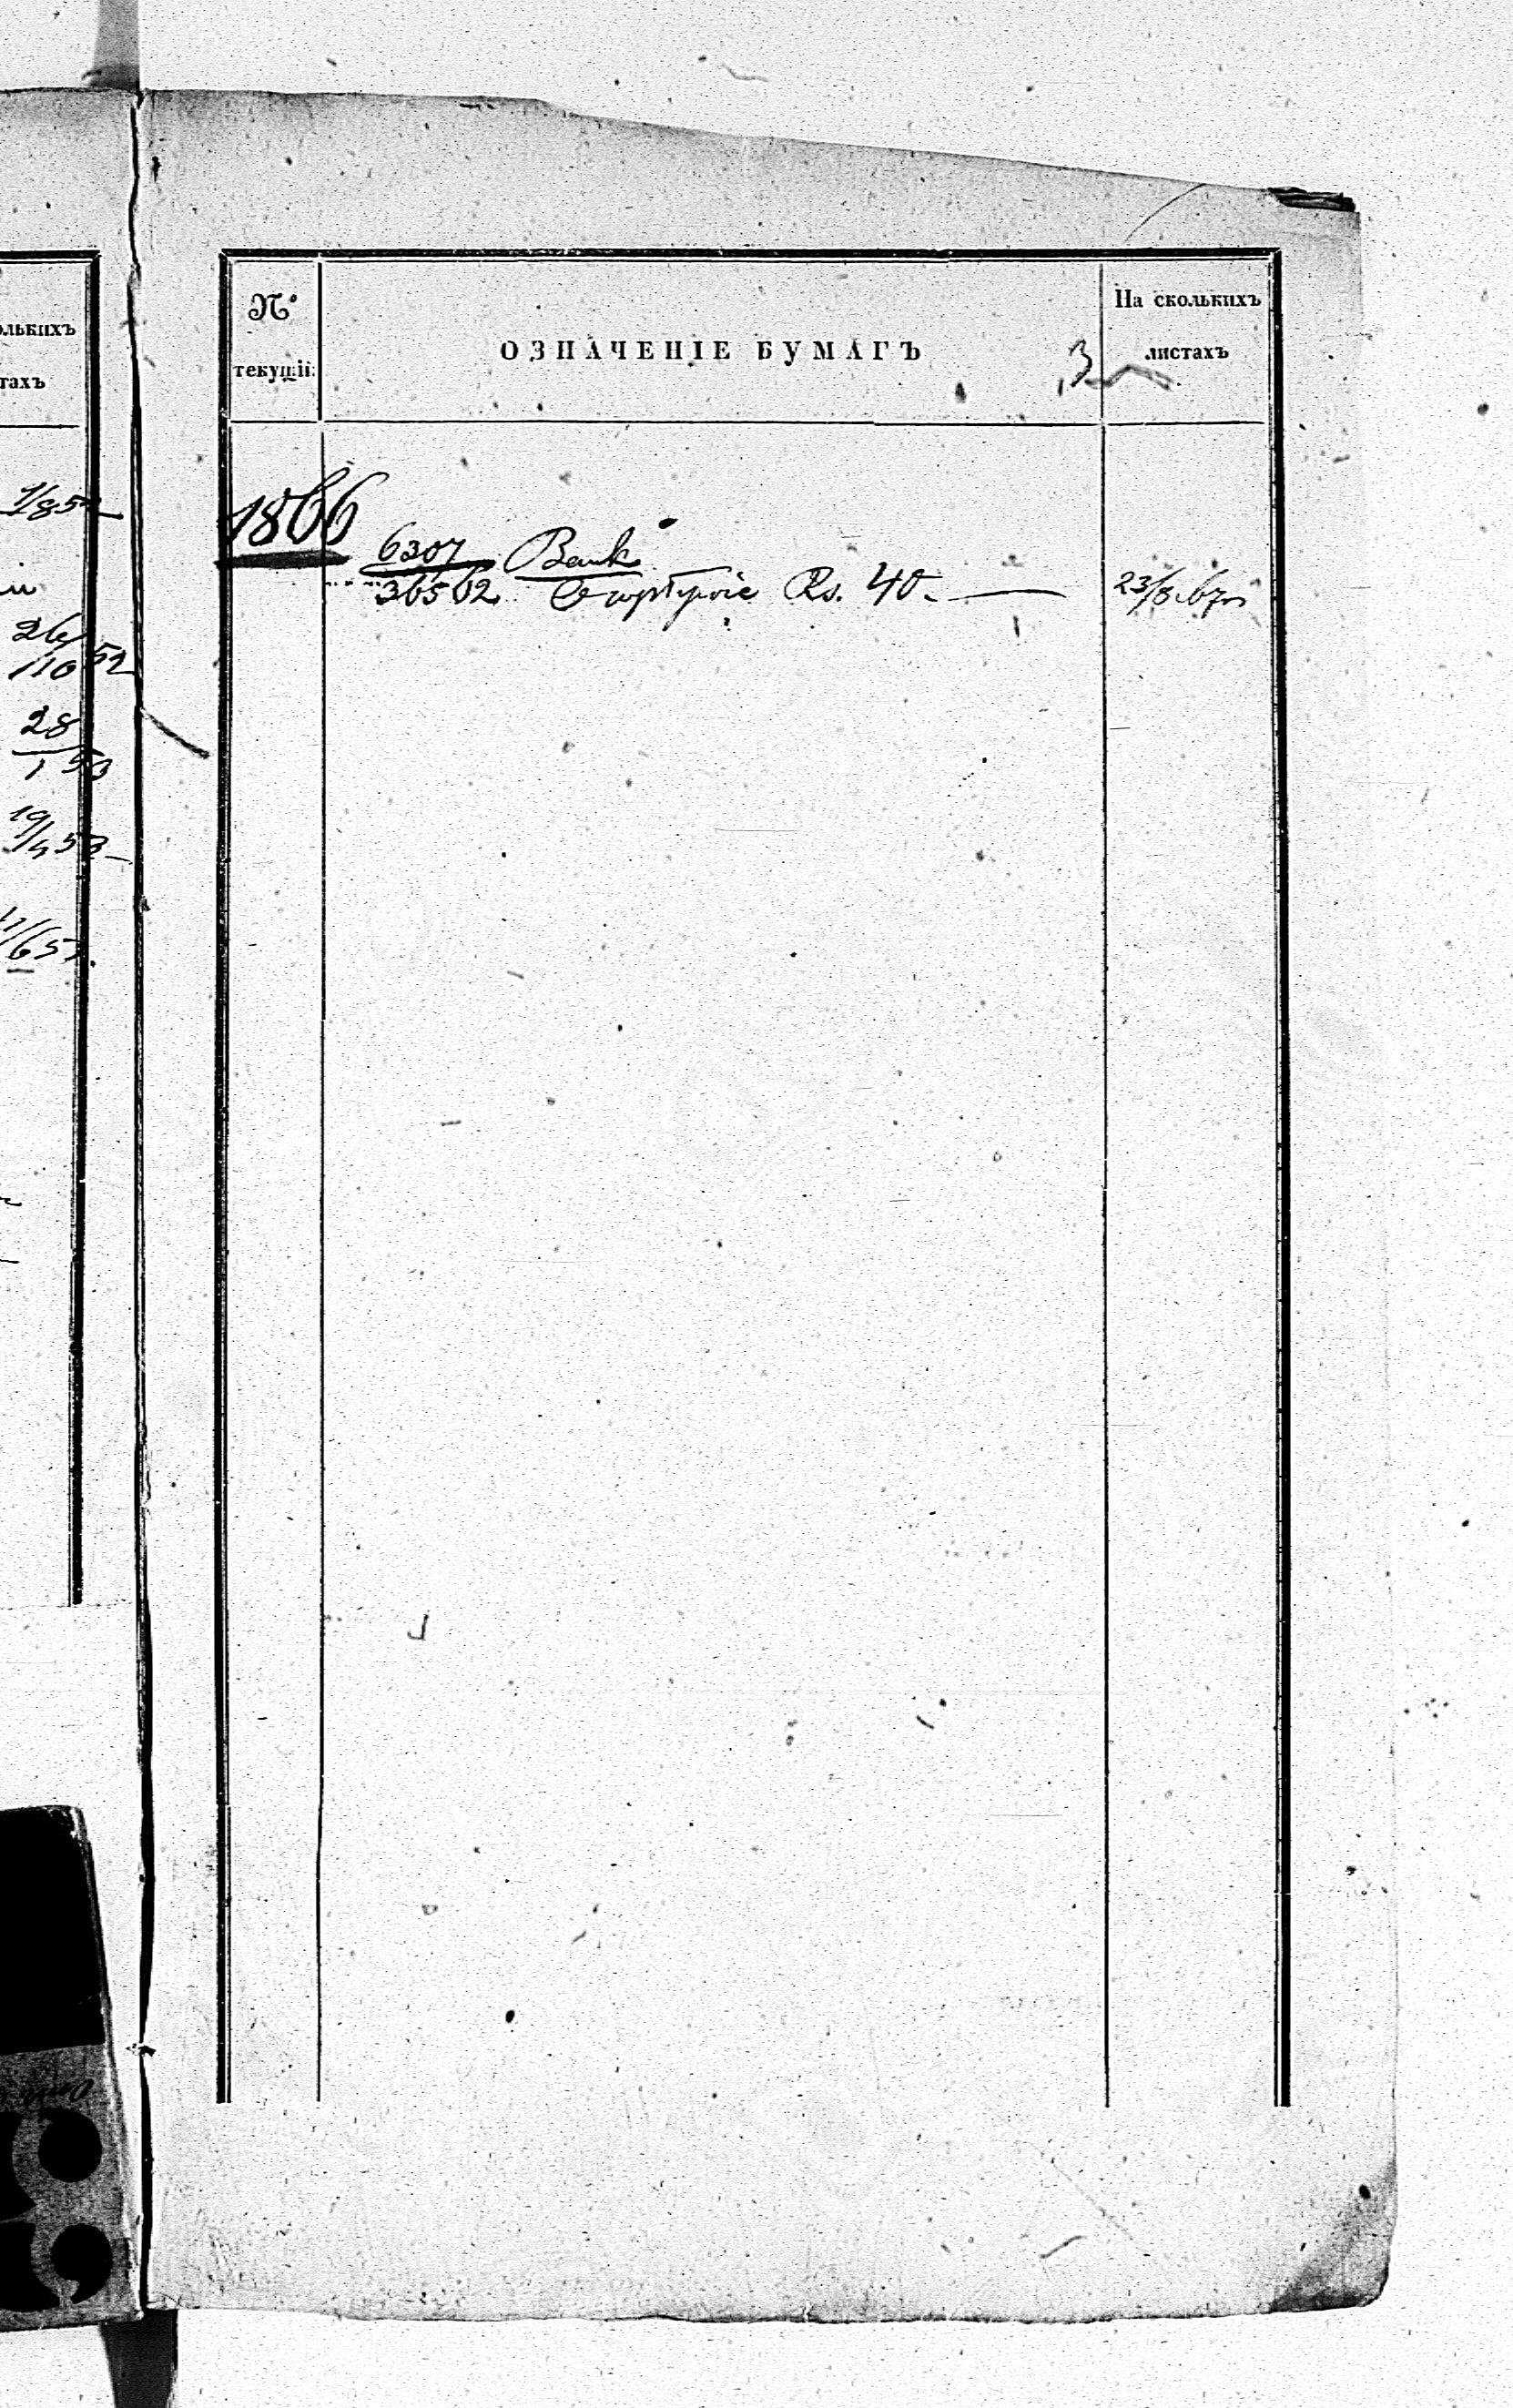 олькихъ
тахъ
1/8 52
26/10 52
28/1 53
19/4 53
№ текущій
ОЗНАЧЕНІЕ БУМАГЪ
На сколькихъ листахъ
3
1866
6307/36562 Bank
Rs. 40.